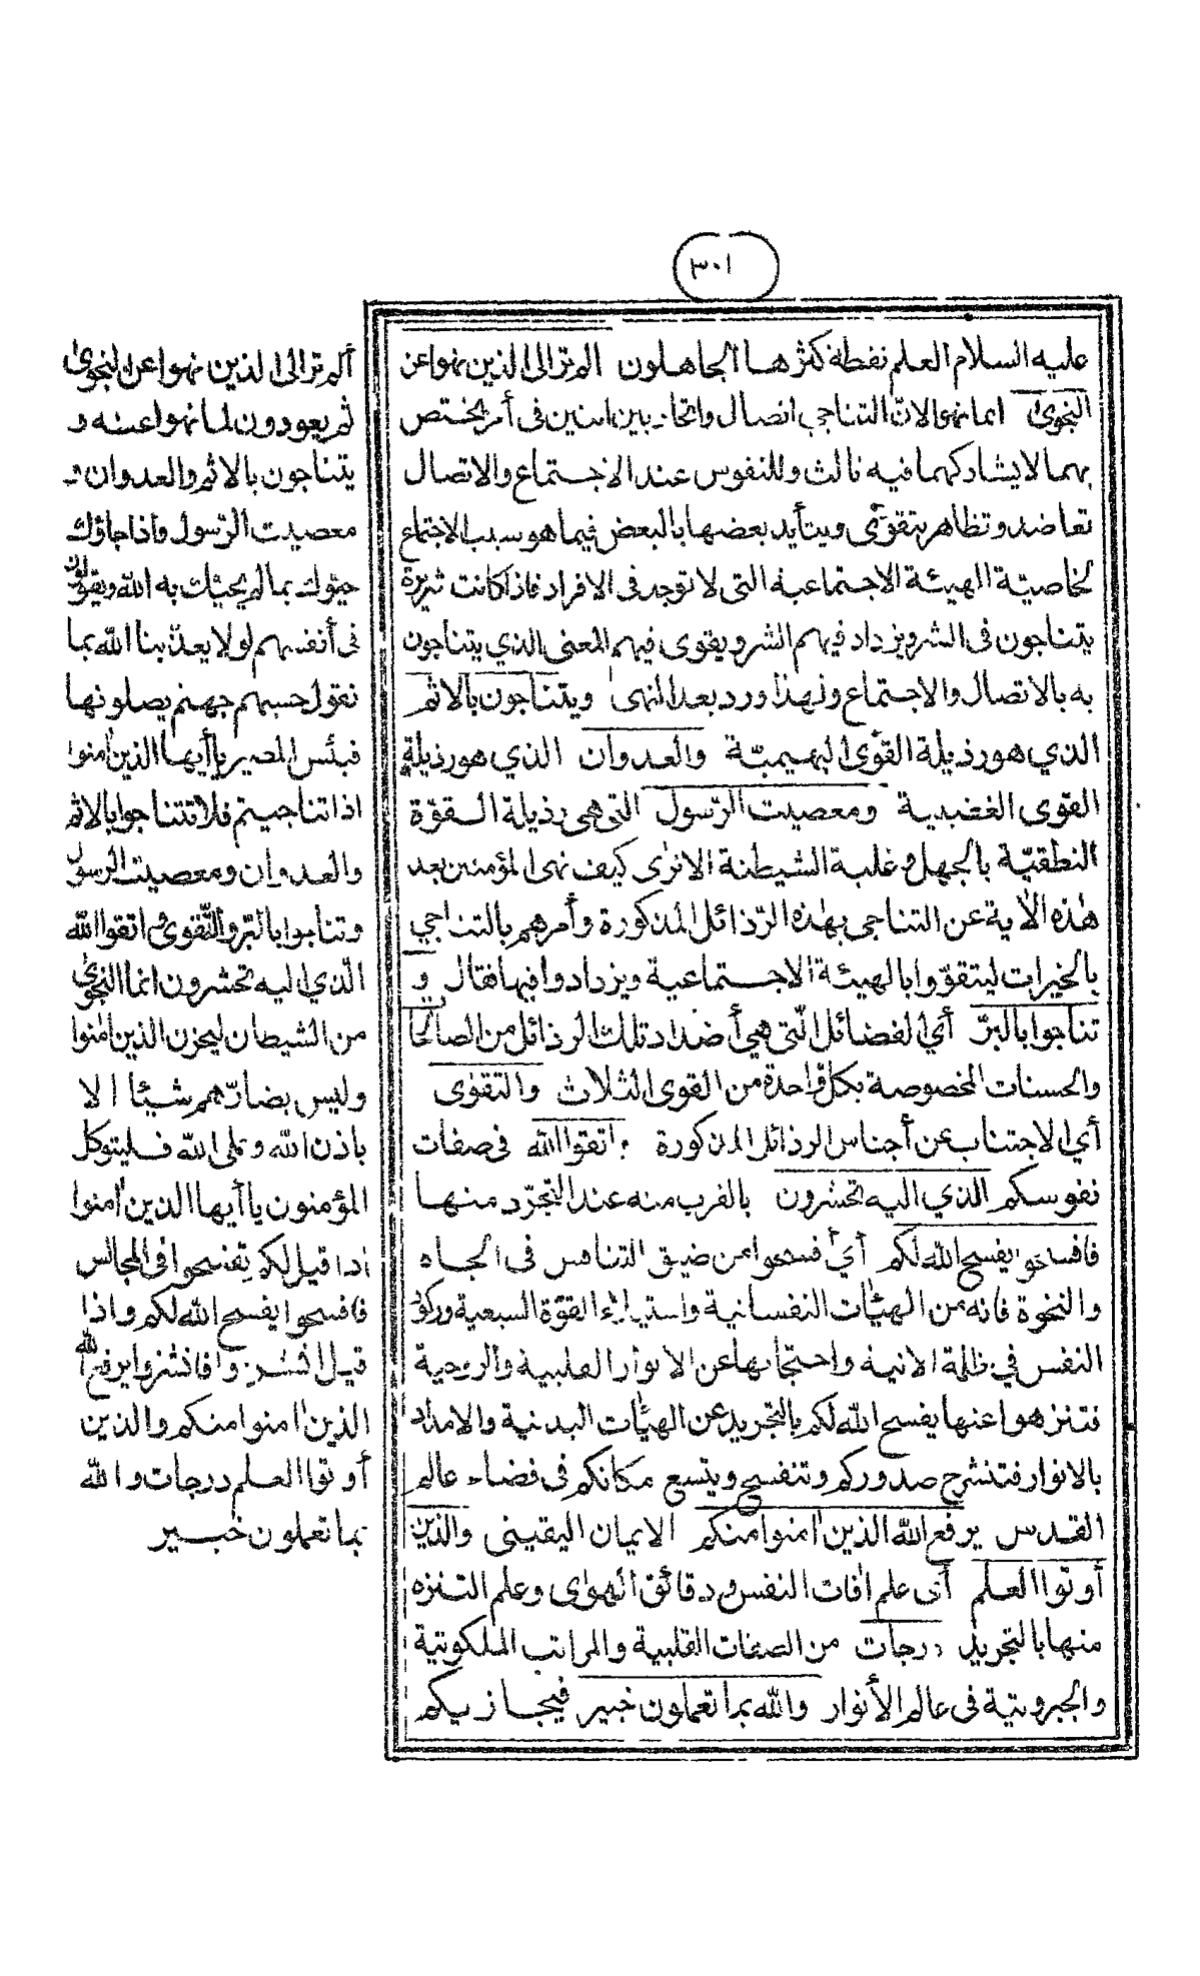 ٣٠١
عليه السلام العلم نقطة كثرها الجاهلون الم تر الى الذين نهوا عن
النجوى انما نهوا لانّ التناجي اتصال واتحاد بين اثنين فى أمر يختص
بهما لا يشاركهما فيه ثالث وللنفوس عند الاجتماع والاتصال
تعاضد وتظاهر يتقوّى ويتأيد بعضها بالبعض فيما هو سبب الاجتماع
لخاصيّة الهيئة الاجتماعية التى لا توجد فى الافراد فاذا كانت شريرة
يتناجون فى الشر ويزداد فيهم الشر ويقوى فيهم المعنى الذي يتناجون
به بالاتصال والاجتماع ولهذا ورد بعد النهى ويتناجون بالاثم
الذي هو رذيلة القوى البهيميّة والعدوان الذي هو رذيلة
القوى الغضبية ومعصيت الرّسول التى هى رذيلة القوّة
النطقيّة بالجهل وغلبة الشيطنة الا ترى كيف نهى المؤمنين بعد
هذه الاٰية عن التناجى بهذه الرّذائل المذكورة وأمرهم بالتناجي
بالخيرات ليتقوّوا بالهيئة الاجتماعية ويزدادوا فيها فقال و
تناجوا بالبرّ أي الفضائل الّتى هي أضداد تلك الرذائل من الصالحا
والحسنات المخصوصة بكل واحدة من القوى الثلاث والتقوى
أي الاجتناب عن أجناس الرذائل المذكورة واتقوا الله فى صفات
نفوسكم الذي اليه تحشرون بالقرب منه عند التجرّد منها
فافسحوا يفسح الله لكم أي أفسحوا من ضيق التنافس فى الجاه
والنخوة فانه من الهيٰات النفسانية واستيلاء القوّة السبعية وركود
النفس في ظلمة الانية واحتجابها عن الانوار القلبية والروحية
فتنزهوا عنها يفسح الله لكم بالتجريد عن الهيٰات البدنية والامداد
بالانوار فتنشرح صدوركم وتنفسح ويتسع مكانكم فى فضاء عالم
القدس يرفع الله الذين اٰمنوا منكم الايمان اليقينى والذين
أوتوا العلم أى علم اٰفات النفس ودقائق الهوٰى وعلم التنزه
منها بالتجريد درجات من الصفات القلبية والمراتب الملكوتية
والجبروتية فى عالم الأنوار والله بما تعملون خبير فيجازيكم
ألم تر الى الذين نهوا عن النجوى
ثم يعودون لما نهوا عنه و
يتناجون بالاثم والعدوان و
معصيت الرّسول واذا جاؤك
حيّوك بما لم يحيك به الله ويقولون
فى أنفسهم لولا يعذّبنا الله بما
نقول حسبهم جهنم يصلونها
فبئس المصير يا أيها الذين اٰمنوا
اذا تناجيتم فلا تتناجوا بالاثم
والعدوان ومعصيت الرسول
وتناجوا بالبّر والتّقوى واتقوا الله
الّذي اليه تحشرون انما النجوى
من الشيطان ليحزن الذين اٰمنوا
وليس بضارّهم شيئا الا
باذن الله وعلى الله فليتوكل
المؤمنون يا أيها الذين اٰمنوا
اذا قيل لكم تفسحوا فى المجالس
فافسحوا يفسح الله لكم واذا
قيل انشزوا فانشزوا يرفع الله
الذين اٰمنوا منكم والذين
أوتوا العلم درجات والله
بما تعملون خبير